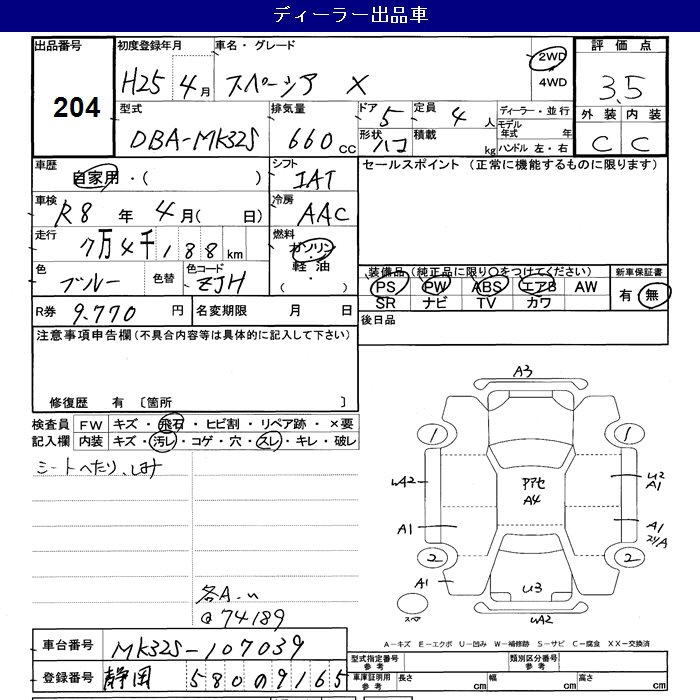 ディーラー出品車
出品番号 204
初度登録年月 H25 4月
車名・グレード スペーシア X
2WD 4WD
評価点 3.5
型式 DBA-MK32S
排気量 660 CC
ドア 5 形状 ハコ
定員 4 人 積載 kg
ディーラー・並行
モデル年式 年
ハンドル 左・右
外装 内装
C C
車歴 自家用・( )
シフト IAT
セールスポイント (正常に機能するものに限ります)
車検 R8 年 4月( 日)
冷房 AAC
走行 7万4千188 km
燃料 ガソリン 軽油 ・( )
色 ブルー 色替
色コード ZJH
装備品 (純正品に限り○をつけてください)
PS PW ABS エアB AW
SR ナビ TV カワ
新車保証書 有 無
R券 9.770 円 名変期限 月 日
後日品
注意事項申告欄 (不具合内容等は具体的に記入して下さい)
修復歴 有 〔箇所 〕
検査員記入欄
FW キズ・飛石・ヒビ割・リペア跡・×要
内装 キズ・汚レ・コゲ・穴・スレ・キレ・破レ
シートへたり、しみ
各A.u
@74189
A3
1 1
uA2 アアセ A4 u2 A1
A1 A1
2 2
A1 u3
スペア uA2
A-キズ E-エクボ U-凹み W-補修跡 S-サビ C-腐食 XX-交換済
車台番号 MK32S-107039
登録番号 静岡 580 の 9165
型式指定番号 参考 類別区分番号 参考
車庫証明用 参考 長さ cm 幅 cm 高さ cm